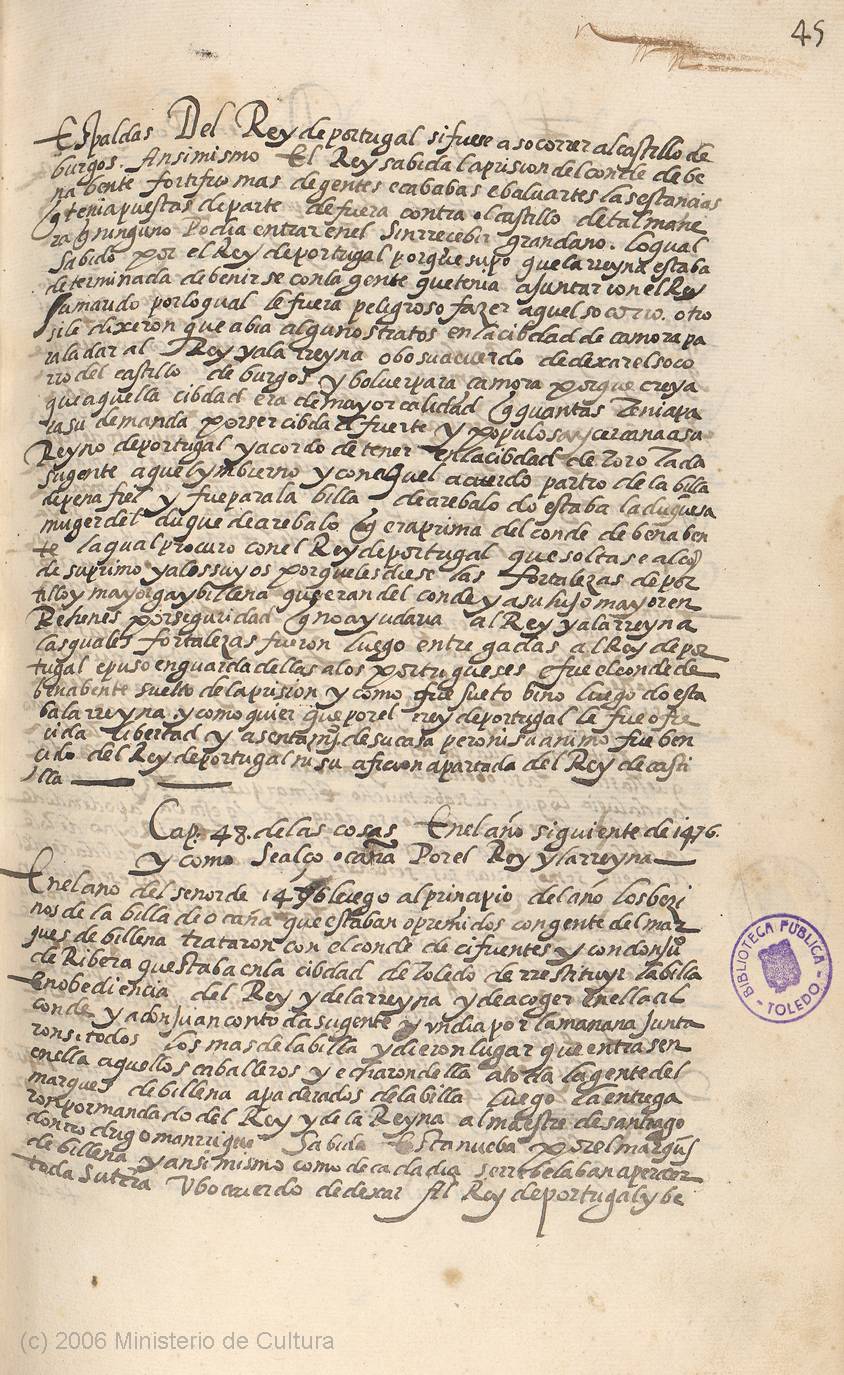 45
Espaldas Del Rey de portugal si fuese a socorrer al castillo de
burgos. Ansimismo El Rey sabida la prision del conde de be
na bente fortifico mas de gentes e cabas e baluartes las estancias
q tenia puestas de parte de fuera contra el castillo de tal mane
ra q ninguno Podia entrar en el Sin rrecebir gran dano. lo qual
Sabido por el Rey de portugal porque supo que la rreyna estaba
determinada de benir se con la gente que tenia a juntar con el Rey
su marido por lo qual le fuera peligroso fazer aquel socorro. otro
si le dixeron que abia algunos tratos en la cibdad de camora pa
ra la dar al Rey y a la rreyna obo su acuerdo de dexar el soco
rro del castillo de burgos y bolver para camora porque creya
que aquella cibdad era de mayor calidad q quantas tenia pa
ra su demanda por ser cibdad fuerte y populosa y cercana a su
Reyno de portugal y acordo de tener en la cibdad de toro toda
su gente aquel ymbierno y con aquel acuerdo partio de la billa
de pena fiel y fue para la billa de arebalo do estaba la duquesa
muger del duque de arebalo q era prima del conde de bena ben
te la qual procuro con el Rey de portugal que soltase al conde
de su primo y a los suyos porque les diese las fortalezas de por
tillo y mayorga y billena que eran del conde y a su hijo mayor en
Rehenes por seguridad q no ayudaria al Rey y a la rreyna
las quales fortalezas fueron luego entregadas al Rey de por
tugal e puso en guarda dellas a los portugueses e fue el conde de
benabente suelto de la prision y como fue suelto bino luego do esta
ba la rreyna. y como quier que por el rrey de portugal le fue ofre
cida libertad y asentamj.º de su casa pero ni su animo fue ben
cido del Rey de portugal ni su aficion apartada del Rey de casti
lla
Cap. 48. de las cosas En el año siguiente de 1476.
y como Se alço ocaña Por el Rey y la rreyna
En el ano del senor de 1476 luego al principio del año los beci
nos de la billa de ocaña que estaban opremidos con gente del mar
ques de billena trataron con el conde de cifuentes y con don juº
de Ribera que estaba en la cibdad de toledo de rrestituyr la billa
en obediencia del Rey y de la rreyna y de acoger en ella al
conde y a don Juan con toda su gente y vn dia por la manana junta
ronse todos los mas de la billa y dieron lugar que entrasen
en ella aquellos caballeros y echaron della a toda la gente del
marques de billena apoderados de la billa luego la entrega
ron por mandado del Rey y de la Reyna al maestre de santiago
don rrodrigo manrrique Sabida Esta nueba por el marques
de billena y ansimismo como de cada dia se rrebelaban a perder
toda Su tierra Vbo acuerdo de dexar Al Rey de portugal y be
BIBLIOTECA PÚBLICA
TOLEDO
(c) 2006 Ministerio de Cultura